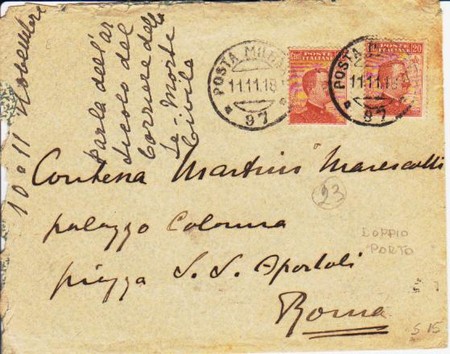 10 e 11 Novembre
parla dell'ar
ticolo del
Corriere della
Morte
Civile
POSTA MILITARE
11.11.18
97
POSTE ITALIANE
POSTA
11.11.18
97
POSTE ITALIANE
20
Contessa Martini Marescotti
palazzo Colonna
piazza S. S. Apostoli
Roma
23
DOPPIO
PORTO
S 15